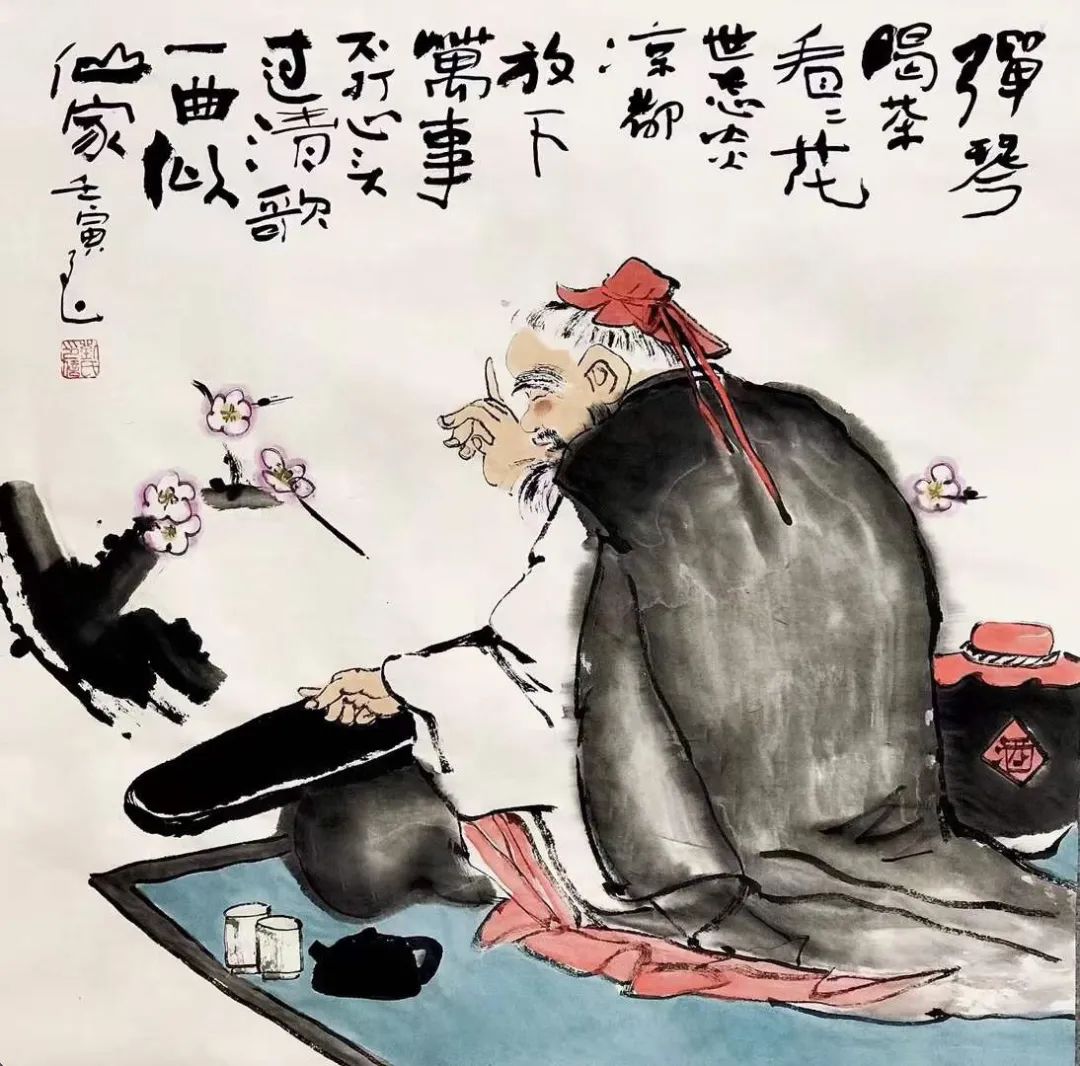 彈琴
喝茶
看〻花
世态炎
凉都
放下
萬事
不打心头
过清歌
一曲似
仙家
壬寅
酒